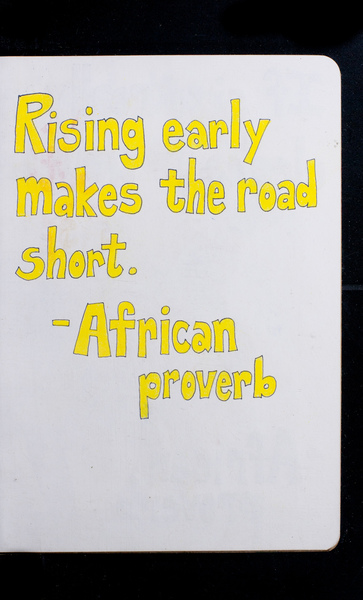 Rising early
makes the road
short.
-African
proverb